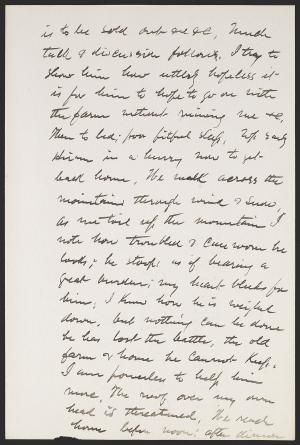 is to be sold out &c &c, Much
talk & discussion follows. I try to
show him how utterly hopeless it
is for him to hope to go on with
the farm without ruining me &c.
Then to bed: poor fitful sleep, Up early
Hiram in a hurry now to get
back home, We walk across the
mountain through wind & snow,
as we toil up the mountain I
note how troubled & care worn he
looks; he stoops as if bearing a
great burden; my heart bleeds for
him; I know how he is weighed
down, but nothing can be done
he has lost the battle, the old
farm & home he cannot keep.
I am powerless to help him
more, The roof over my own
head is threatened, We reach
home before noon; after dinner